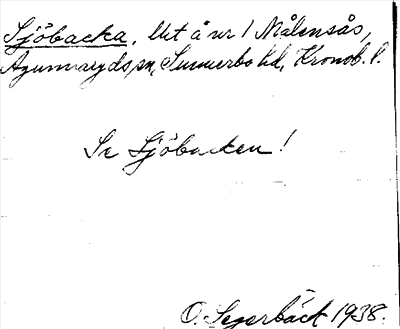 Sjöbacka, lht å nr 1 Målensås,
Agunnaryds sn, Sunnerbo hd, Kronob. l.
Se Sjöbacken!
O. Segerbäck 1938.